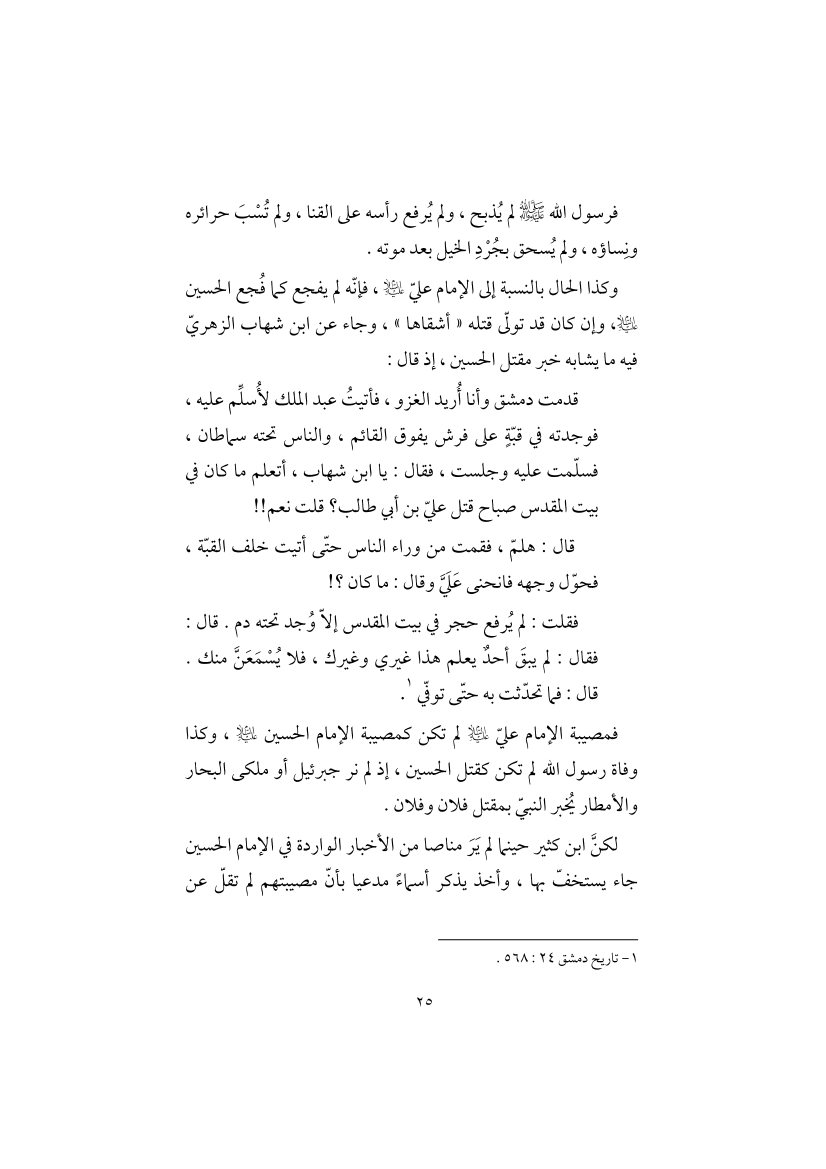 فرسول الله ﷺ لم يُذبح ، ولم يُرفع رأسه على القنا ، ولم تُسْبَ حرائره
ونِساؤه ، ولم يُسحق بجُرْدِ الخيل بعد موته .
وكذا الحال بالنسبة إلى الإمام عليّ عليه السلام ، فإنّه لم يفجع كما فُجع الحسين
عليه السلام، وإن كان قد تولّى قتله « أشقاها » ، وجاء عن ابن شهاب الزهريّ
فيه ما يشابه خبر مقتل الحسين ، إذ قال :
قدمت دمشق وأنا أُريد الغزو ، فأتيتُ عبد الملك لأُسلِّم عليه ،
فوجدته في قبّةٍ على فرش يفوق القائم ، والناس تحته سماطان ،
فسلّمت عليه وجلست ، فقال : يا ابن شهاب ، أتعلم ما كان في
بيت المقدس صباح قتل عليّ بن أبي طالب؟ قلت نعم!!
قال : هلمّ ، فقمت من وراء الناس حتّى أتيت خلف القبّة ،
فحوّل وجهه فانحنى عَلَيَّ وقال : ما كان ؟!
فقلت : لم يُرفع حجر في بيت المقدس إلاّ وُجد تحته دم . قال :
فقال : لم يبقَ أحدٌ يعلم هذا غيري وغيرك ، فلا يُسْمَعَنَّ منك .
قال : فما تحدّثت به حتّى توفّي ١.
فمصيبة الإمام عليّ عليه السلام لم تكن كمصيبة الإمام الحسين عليه السلام ، وكذا
وفاة رسول الله لم تكن كقتل الحسين ، إذ لم نر جبرئيل أو ملكى البحار
والأمطار يُخبر النبيّ بمقتل فلان وفلان .
لكنَّ ابن كثير حينما لم يَرَ مناصا من الأخبار الواردة في الإمام الحسين
جاء يستخفّ بها ، وأخذ يذكر أسماءً مدعيا بأنّ مصيبتهم لم تقلّ عن
١- تاريخ دمشق ٢٤ : ٥٦٨ .
٢٥